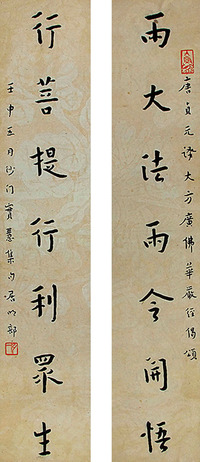 唐貞元譯大方廣佛華嚴經偈頌
雨大法雨令開悟
行菩提行利眾生
壬申五月沙門集句居明